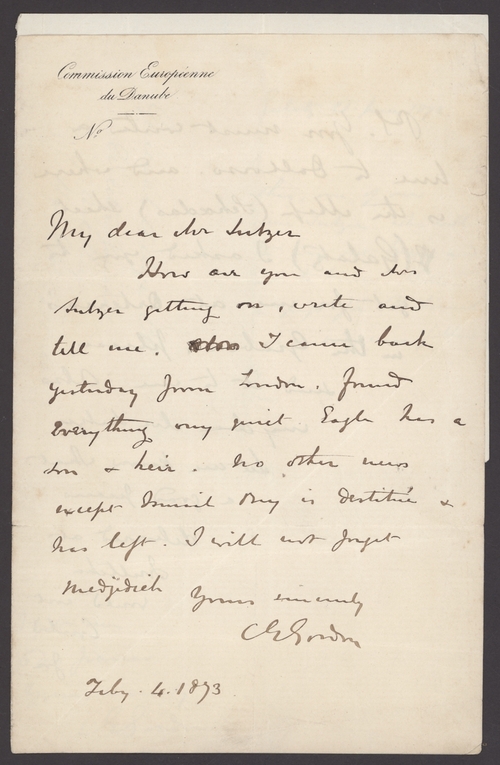 Commission Européenne
du Danube
No
My dear Mr Sutzer
How are you and Mrs
Sutzer getting on, write and
tell me. I came back
yesterday from London. found
everything very quiet Eagle has a
son & heir. No other news
except Ismail Bey is destitué &
has left. I will not forget
Medjidieh
Yours sincerely
CGGordon
Feby. 4. 1873